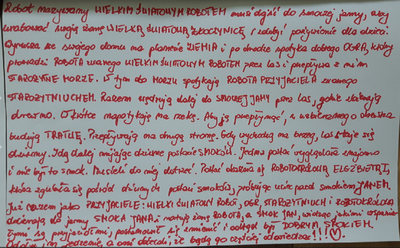 Robot nazywany WIELKIM ŚWIATOWYM ROBOTEM musi dojść do smoczej jamy, aby
uratować swoją żonę WIELKĄ ŚWIATOWĄ ZBOCZYNICĘ i zdobyć pożywienie dla dzieci.
Wyrusza ze swojego domu na planecie ZIEMIA i po drodze spotyka dobrego OGRA, który
prowadzi ROBOTA zwanego WIELKIM ŚWIATOWYM ROBOTEM przez las i przepływa z nim
STAROŻYTNE MORZE. W tym do morzu spotykają ROBOTA PRZYJACIELA zwanego
STAROŻYTNIUCHEM. Razem wędrują dalej do SMOCZEJ JAMY przez las, gdzie zbierają
drewno. Wkrótce napotykają na rzekę. Aby ją przepłynąć, z uzbieranego drewna
budują TRATWĘ. Przeprawiają na drugą stronę. Gdy wychodzą na brzeg, las staje się
dziwny. Idą dalej mijając dziwne postacie SMOKÓW. Jedna postać wyglądała znajomo
i nie był to smok. Musieli do niej dotrzeć. Postać okazała się ROBOTOKRÓLOWĄ ELŻBIETĄ,
która zgubiła się pośród dziwnych postaci smoków, próbując uciec przed smokiem JANEM.
Już razem jako PRZYJACIELE: WIELKI ŚWIATOWY ROBOT, OGR, STAROŻYTNIUCH i ROBOTOKRÓLOWA
docierają do jamy SMOKA JANA i ratują żonę ROBOTA, a SMOK JAN, widząc jakimi wspania-
łymi są przyjaciółmi, postanowił się zmienić i odtąd być DOBRYM SMOKIEM.
jedzenie, a oni obiecali, że będą go częściej odwiedzać!!!